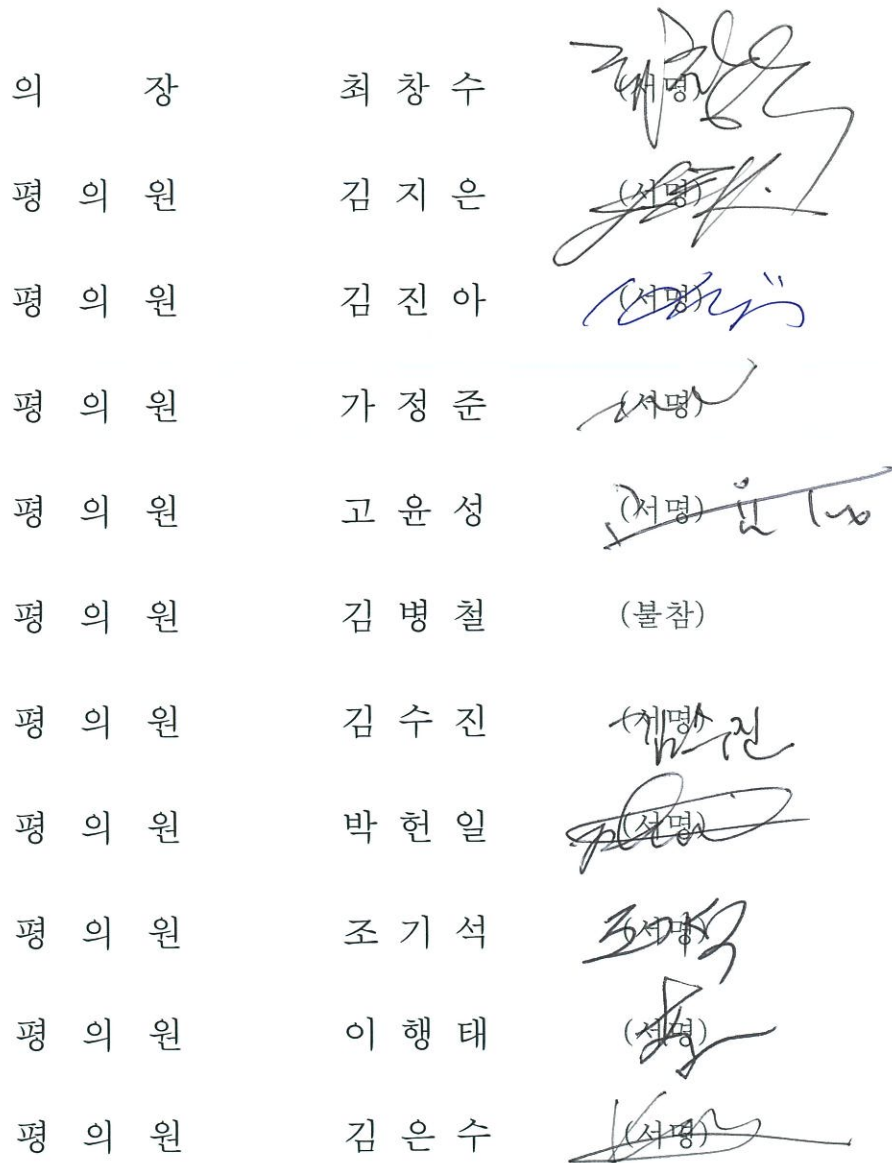 의 장 최 창 수 (서명)
평 의 원 김 지 은 (서명)
평 의 원 김 진 아 (서명)
평 의 원 가 정 준 (서명)
평 의 원 고 윤 성 (서명)
평 의 원 김 병 철 (불참)
평 의 원 김 수 진 (서명) 김수진
평 의 원 박 헌 일 (서명)
평 의 원 조 기 석 (서명) 조기석
평 의 원 이 행 태 (서명)
평 의 원 김 은 수 (서명)